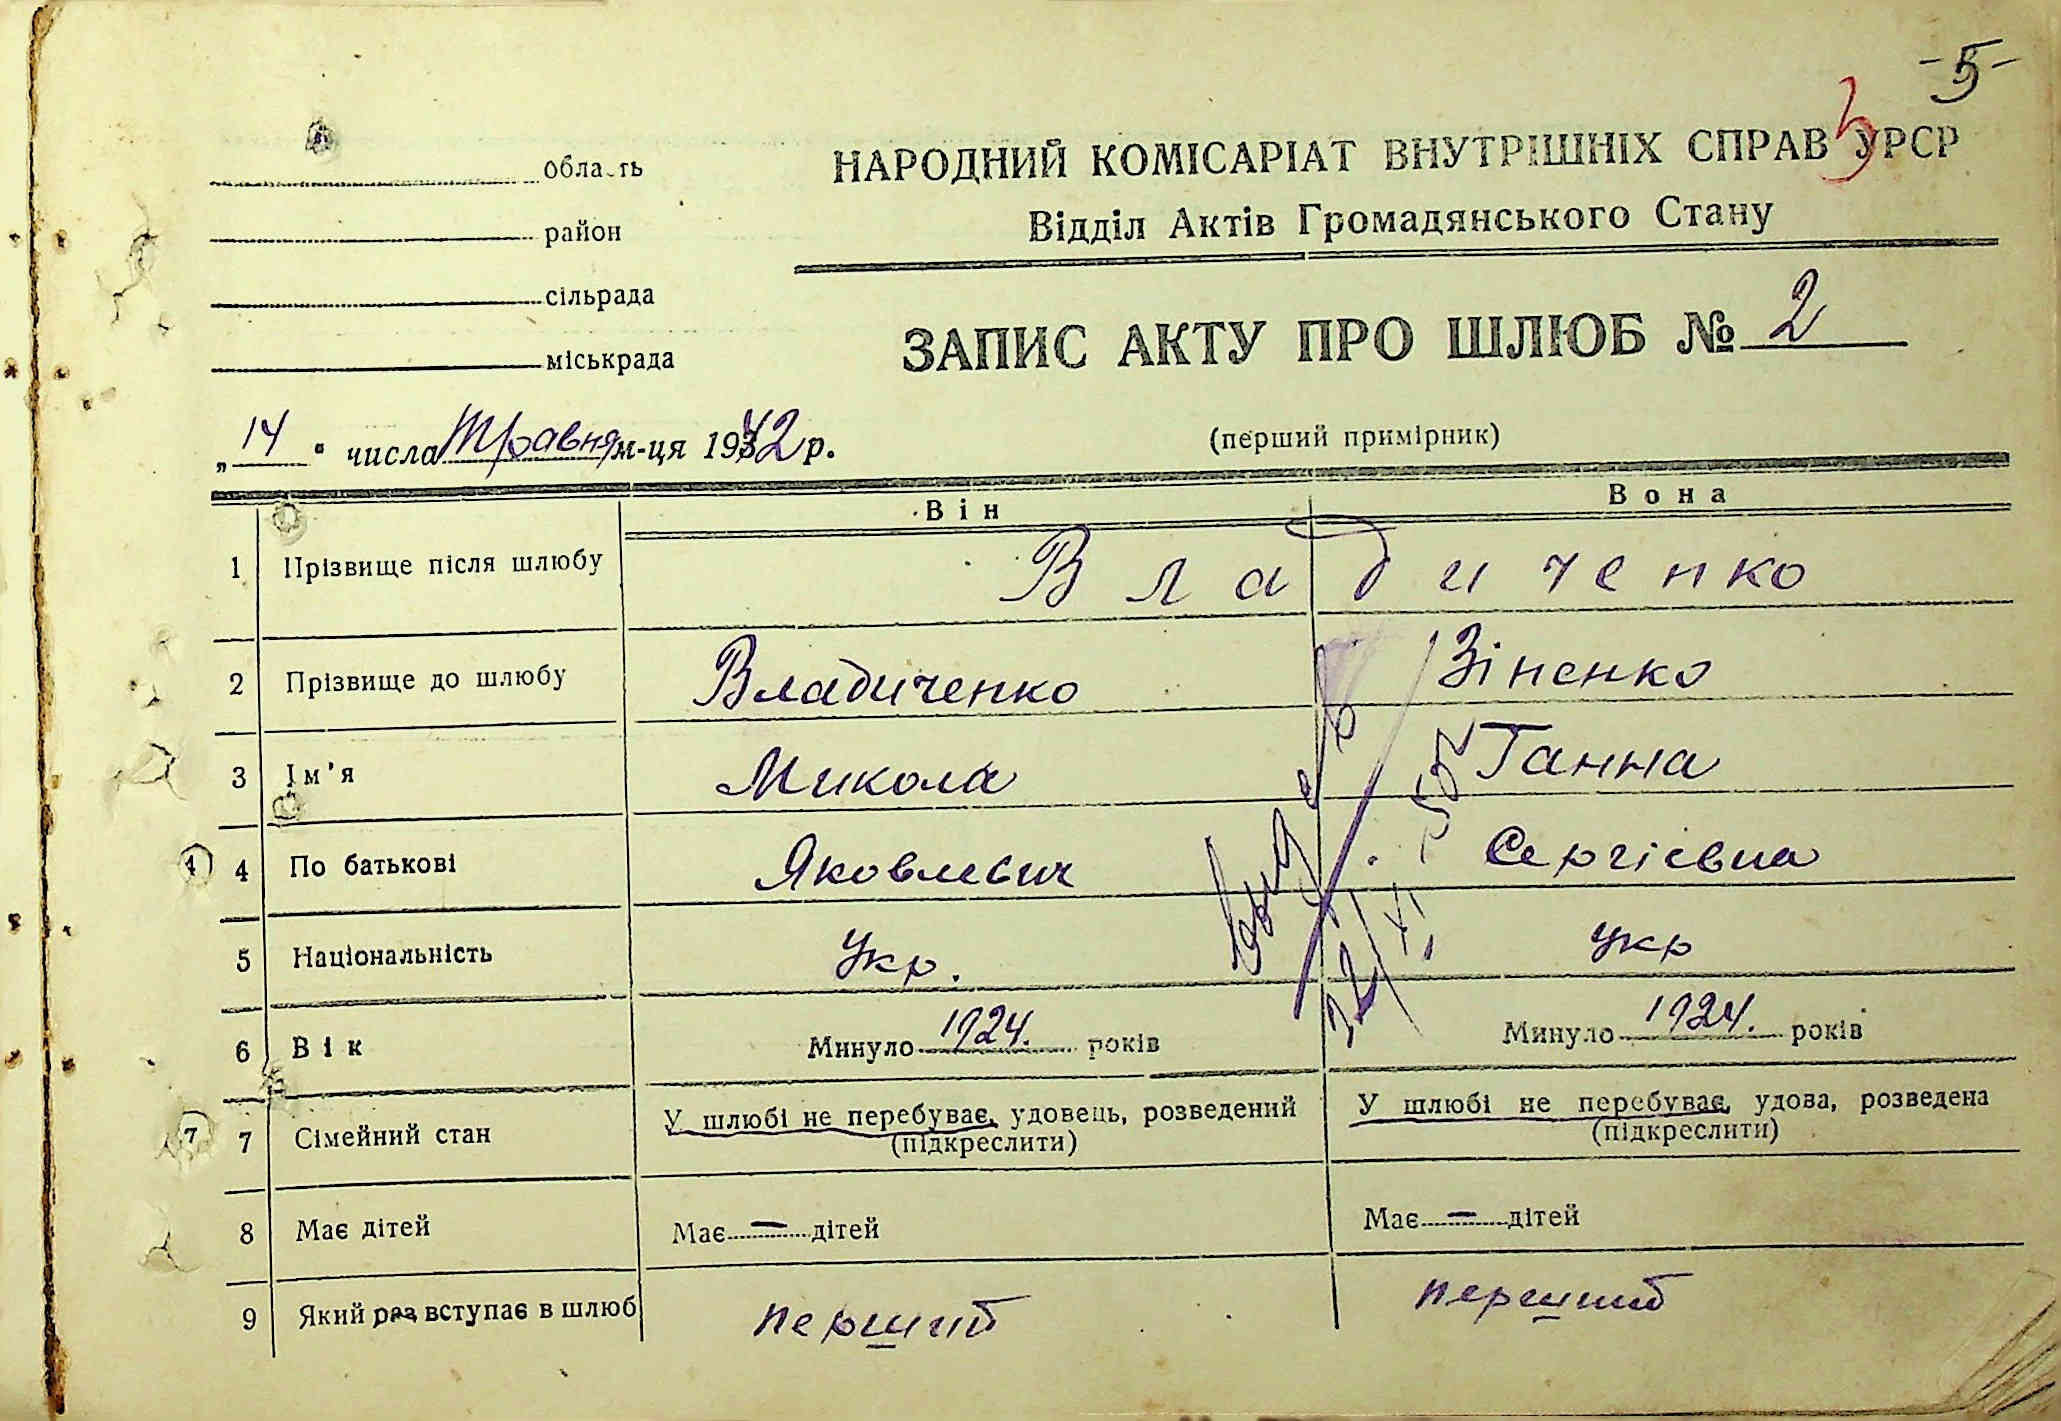 -5-
5
область
район
сільрада
міськрада
НАРОДНИЙ КОМІСАРІАТ ВНУТРІШНІХ СПРАВ УРСР
Відділ Актів Громадянського Стану
ЗАПИС АКТУ ПРО ШЛЮБ № 2
(перший примірник)
„14“ числа Травня м-ця 1942 р.
Він Вона
1 Прізвище після шлюбу Владиченко
2 Прізвище до шлюбу Владиченко Зіненко
3 Ім'я Микола Ганна
4 4 По батькові Яковлевич Сергієвна
5 Національність Укр. Укр
6 Вік Минуло 1924. років Минуло 1924. років
7 7 Сімейний стан У шлюбі не перебуває, удовець, розведений У шлюбі не перебуває, удова, розведена
(підкреслити) (підкреслити)
8 Має дітей Має — дітей Має — дітей
9 Який раз вступає в шлюб перший перший